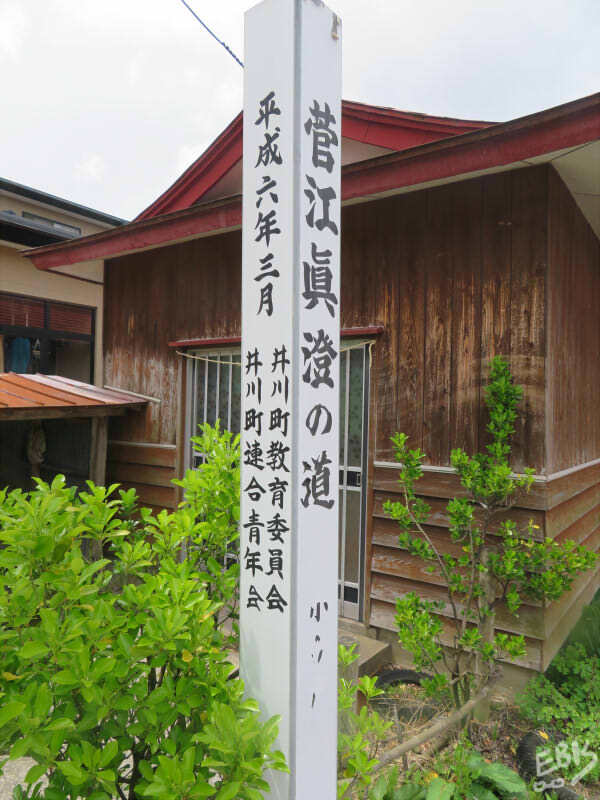 菅江眞澄の道
平成六年三月
井川町教育委員会
井川町連合青年会
EBIS